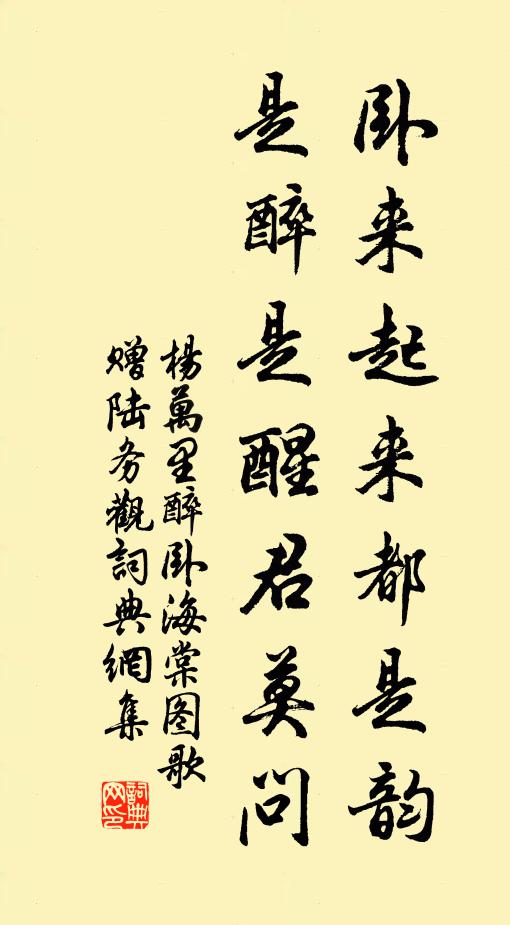 卧来起来都是韵
是醉是醒君莫问
楊萬里醉卧海棠图歌
赠陆务觀詞典網集
詞典
网印